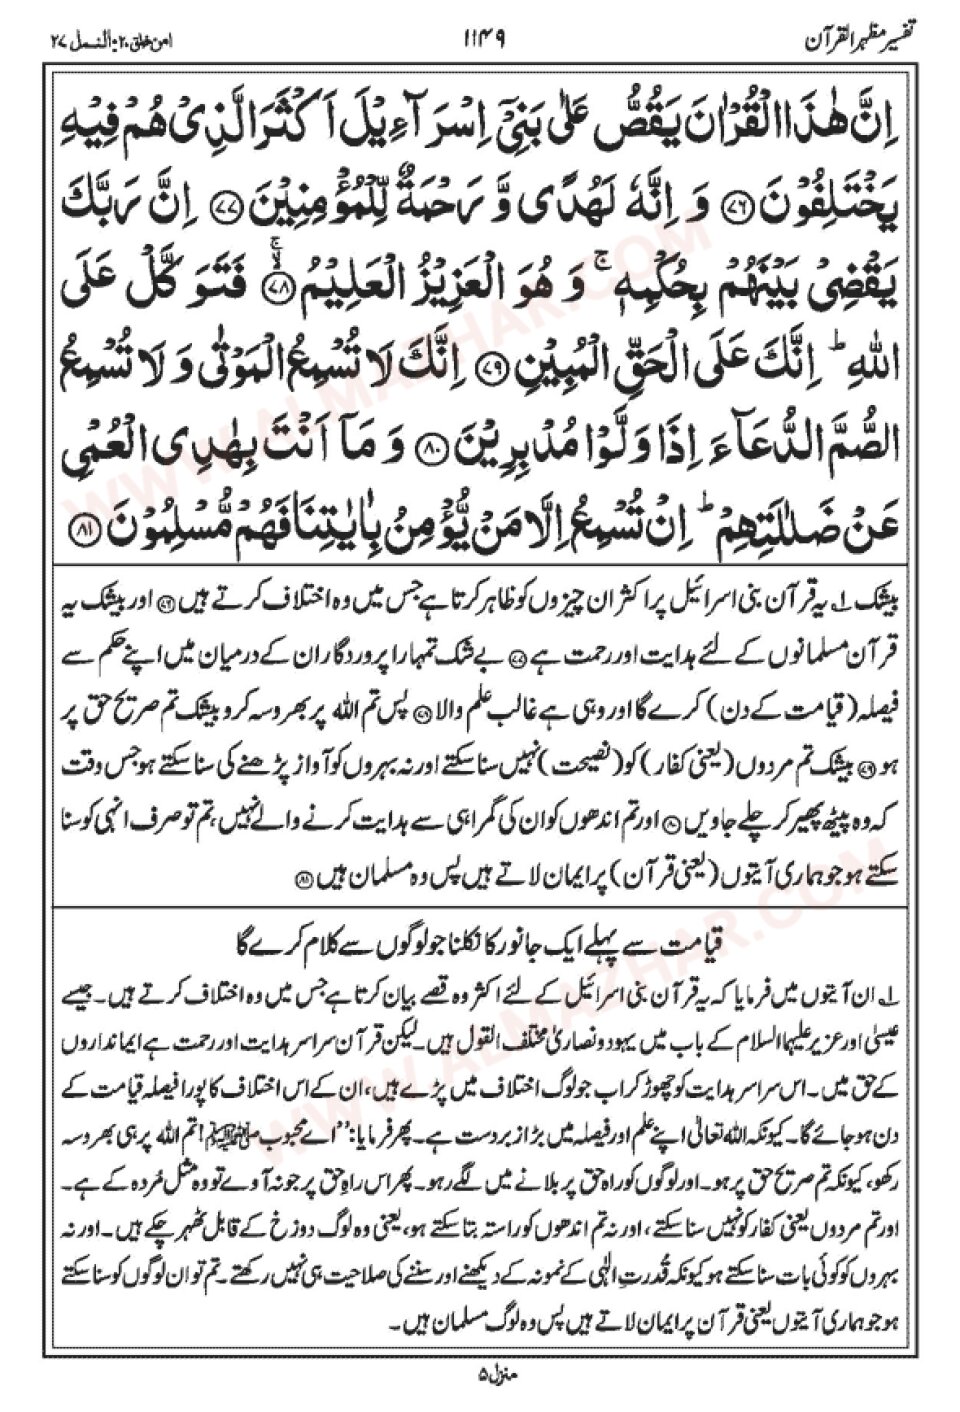 تفسیر مظہر القرآن
۱۱۴۹
امن خلق ۲۰، النمل ۲۷
اِنَّ هٰذَا الْقُرْاٰنَ يَقُصُّ عَلٰى بَنِيْٓ اِسْرَآءِيْلَ اَكْثَرَ الَّذِيْ هُمْ فِيْهِ
يَخْتَلِفُوْنَ ﴿۷۶﴾ وَ اِنَّهٗ لَهُدًى وَّ رَحْمَةٌ لِّلْمُؤْمِنِيْنَ ﴿۷۷﴾ اِنَّ رَبَّكَ
يَقْضِيْ بَيْنَهُمْ بِحُكْمِهٖ ۚ وَ هُوَ الْعَزِيْزُ الْعَلِيْمُ ﴿۷۸﴾ ۙۚ فَتَوَكَّلْ عَلَى
اللّٰهِ ؕ اِنَّكَ عَلَى الْحَقِّ الْمُبِيْنِ ﴿۷۹﴾ اِنَّكَ لَا تُسْمِعُ الْمَوْتٰى وَ لَا تُسْمِعُ
الصُّمَّ الدُّعَآءَ اِذَا وَلَّوْا مُدْبِرِيْنَ ﴿۸۰﴾ وَ مَآ اَنْتَ بِهٰدِي الْعُمْيِ
عَنْ ضَلٰلَتِهِمْ ؕ اِنْ تُسْمِعُ اِلَّا مَنْ يُّؤْمِنُ بِاٰيٰتِنَا فَهُمْ مُّسْلِمُوْنَ ﴿۸۱﴾
بیشک ۱؎ یہ قرآن بنی اسرائیل پر اکثر ان چیزوں کو ظاہر کرتا ہے جس میں وہ اختلاف کرتے ہیں ﴿۷۶﴾ اور بیشک یہ
قرآن مسلمانوں کے لئے ہدایت اور رحمت ہے ﴿۷۷﴾ بے شک تمہارا پروردگار ان کے درمیان میں اپنے حکم سے
فیصلہ (قیامت کے دن) کرے گا اور وہی ہے غالب علم والا ﴿۷۸﴾ پس تم اللہ پر بھروسہ کرو بیشک تم صریح حق پر
ہو ﴿۷۹﴾ بیشک تم مردوں (یعنی کفار) کو (نصیحت) نہیں سنا سکتے اور نہ بہروں کو آواز پڑھنے کی سنا سکتے ہو جس وقت
کہ وہ پیٹھ پھیر کر چلے جاویں ﴿۸۰﴾ اور تم اندھوں کو ان کی گمراہی سے ہدایت کرنے والے نہیں، تم تو صرف انہی کو سنا
سکتے ہو جو ہماری آیتوں (یعنی قرآن) پر ایمان لاتے ہیں پس وہ مسلمان ہیں ﴿۸۱﴾
قیامت سے پہلے ایک جانور کا نکلنا جو لوگوں سے کلام کرے گا
۱؎ ان آیتوں میں فرمایا کہ یہ قرآن بنی اسرائیل کے لئے اکثر وہ قصے بیان کرتا ہے جس میں وہ اختلاف کرتے ہیں۔ جیسے
عیسیٰ اور عزیر علیہما السلام کے باب میں یہود و نصاریٰ مختلف القول ہیں۔ لیکن قرآن سراسر ہدایت اور رحمت ہے ایمانداروں
کے حق میں۔ اس سراسر ہدایت کو چھوڑ کر اب جو لوگ اختلاف میں پڑے ہیں، ان کے اس اختلاف کا پورا فیصلہ قیامت کے
دن ہو جائے گا۔ کیونکہ اللہ تعالیٰ اپنے علم اور فیصلہ میں بڑا زبردست ہے۔ پھر فرمایا: ''اے محبوب ﷺ! تم اللہ پر ہی بھروسہ
رکھو، کیونکہ تم صریح حق پر ہو۔ اور لوگوں کو راہ حق پر بلانے میں لگے رہو۔ پھر اس راہِ حق پر جو نہ آوے تو وہ مثل مُردہ کے ہے۔
اور تم مردوں یعنی کفار کو نہیں سنا سکتے، اور نہ تم اندھوں کو راستہ بتا سکتے ہو، یعنی وہ لوگ دوزخ کے قابل ٹھہر چکے ہیں۔ اور نہ
بہروں کو کوئی بات سنا سکتے ہو کیونکہ قُدرتِ الٰہی کے نمونہ کے دیکھنے اور سننے کی صلاحیت ہی نہیں رکھتے۔ تم تو ان لوگوں کو سنا سکتے
ہو جو ہماری آیتوں یعنی قرآن پر ایمان لاتے ہیں پس وہ لوگ مسلمان ہیں۔
منزل ۵
WWW.ALMAZHAR.COM
WWW.ALMAZHAR.COM